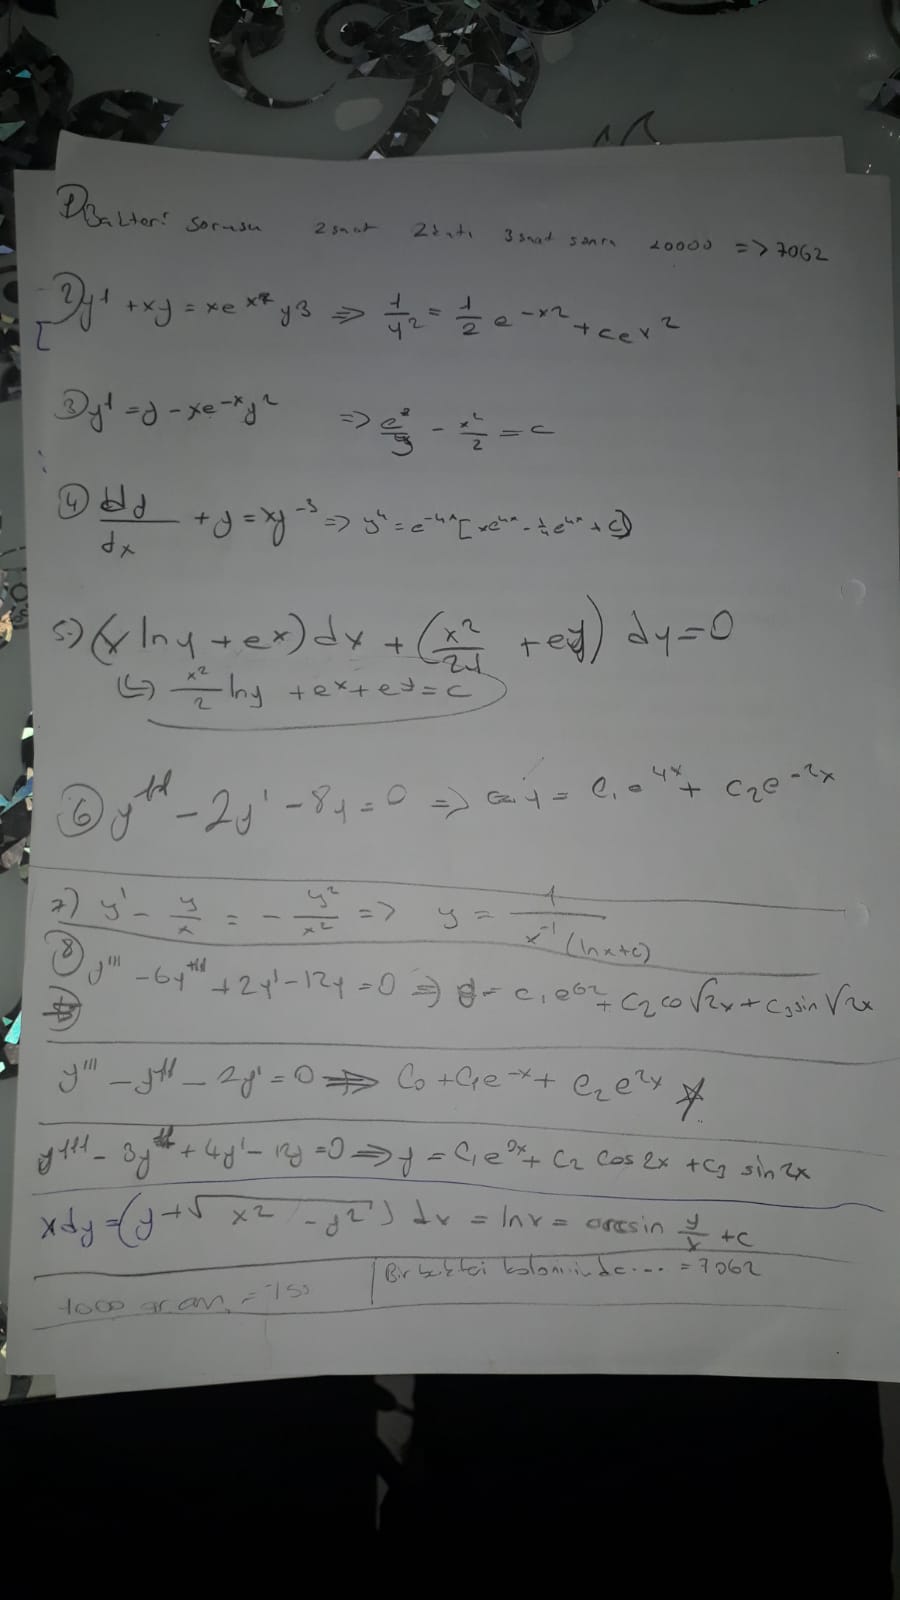 1) Bakteri sorusu 2 saat 2 katı 3 saat sonra 20000 => 7062
2) y' + xy = xe^x² y3 => 1/y² = 1/2 e^-x2 + ce^x2
3) y' = y - xe^-x y² => e^x/y - x²/2 = c
4) dy/dx + y = xy^-3 => y⁴ = e^-4x [xe^4x - 1/4 e^4x + c]
5-) (x lny + ex) dx + (x2/2y + ey) dy = 0
↳ x²/2 lny + e^x + e^y = c
6) y'' - 2y' - 8y = 0 => y = c₁e^4x + c2e^-2x
7) y' - y/x = - y²/x² => y = 1/x^-1 (lnx+c)
8) y''' - 6y'' + 2y' - 12y = 0 => y = c₁e^6x + c2 co√2x + c3sin√2x
y''' - y'' - 2y' = 0 => C0 + C1e^-x + C2e^2x
y''' - 3y'' + 4y' - 12y = 0 => y = C1e^3x + C2 Cos2x + C3 sin2x
xdy = (y + √x2 - y2) dx = lnx = arcsin y/x + c
1000 gram =
Bir bakteri kolonisinde.... = 7062